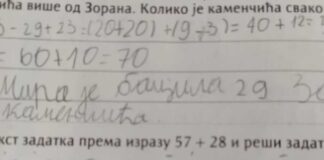 ића више од Зорана. Колико је каменчића свако
- 29+23=(20+20)+(9+3)=40+12=
= 60+10=70
Мира је бацила 29 Зо
каменчића
кст задатка према изразу 57 + 28 и реши задат